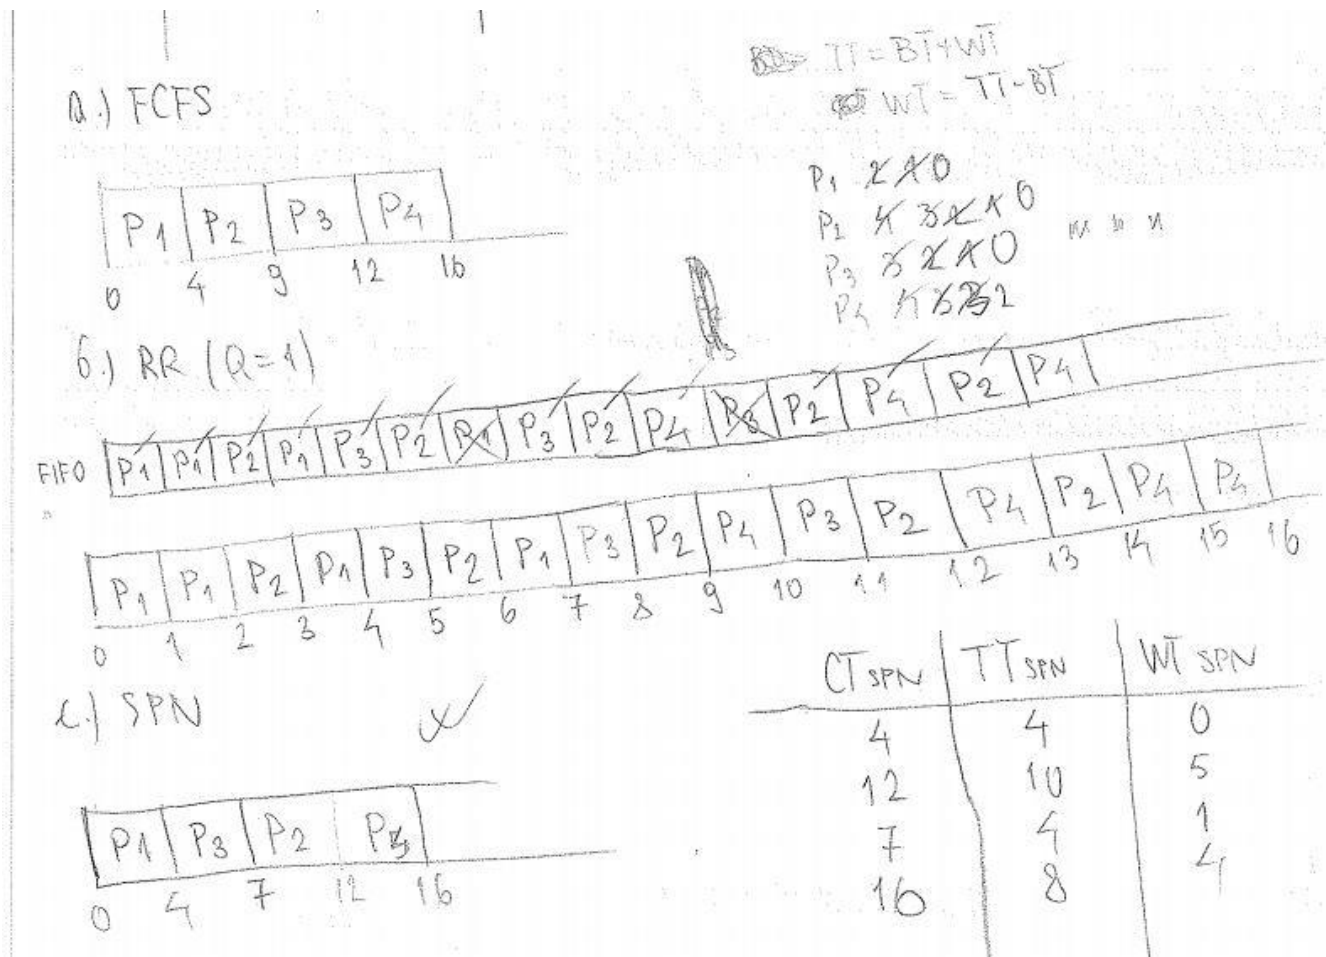 TT = BT+WT
WT = TT-BT
a.) FCFS
P1 P2 P3 P4
0 4 9 12 16
P1 2 1 0
P2 4 3 2 1 0
P3 3 2 1 0
P4 4 3 2
б.) RR (Q=1)
FIFO P1 P1 P2 P1 P3 P2 P1 P3 P2 P4 P3 P2 P4 P2 P4
P1 P1 P2 P1 P3 P2 P1 P3 P2 P4 P3 P2 P4 P2 P4 P4
0 1 2 3 4 5 6 7 8 9 10 11 12 13 14 15 16
c.) SPN
P1 P3 P2
0 4 7 12 16
CT SPN TT SPN WT SPN
4 4 0
12 10 5
7 4 1
16 8 4